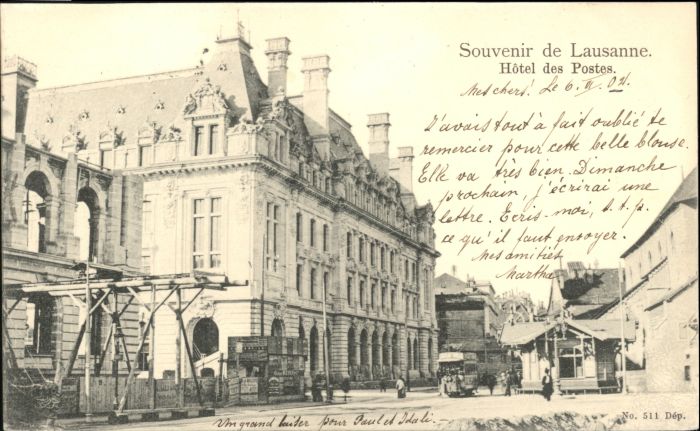 Souvenir de Lausanne.
Hôtel des Postes.
Mes chers. Le 6. II. 02.
J'avais tout à fait oublié te
remercier pour cette belle blouse.
Elle va très bien. Dimanche
prochain j'écrirai une
lettre. Ecris-moi, s.t.p.
ce qu'il faut envoyer.
Mes amitiés
Martha
Un grand baiser pour Paul et Idali.
No. 511 Dép.